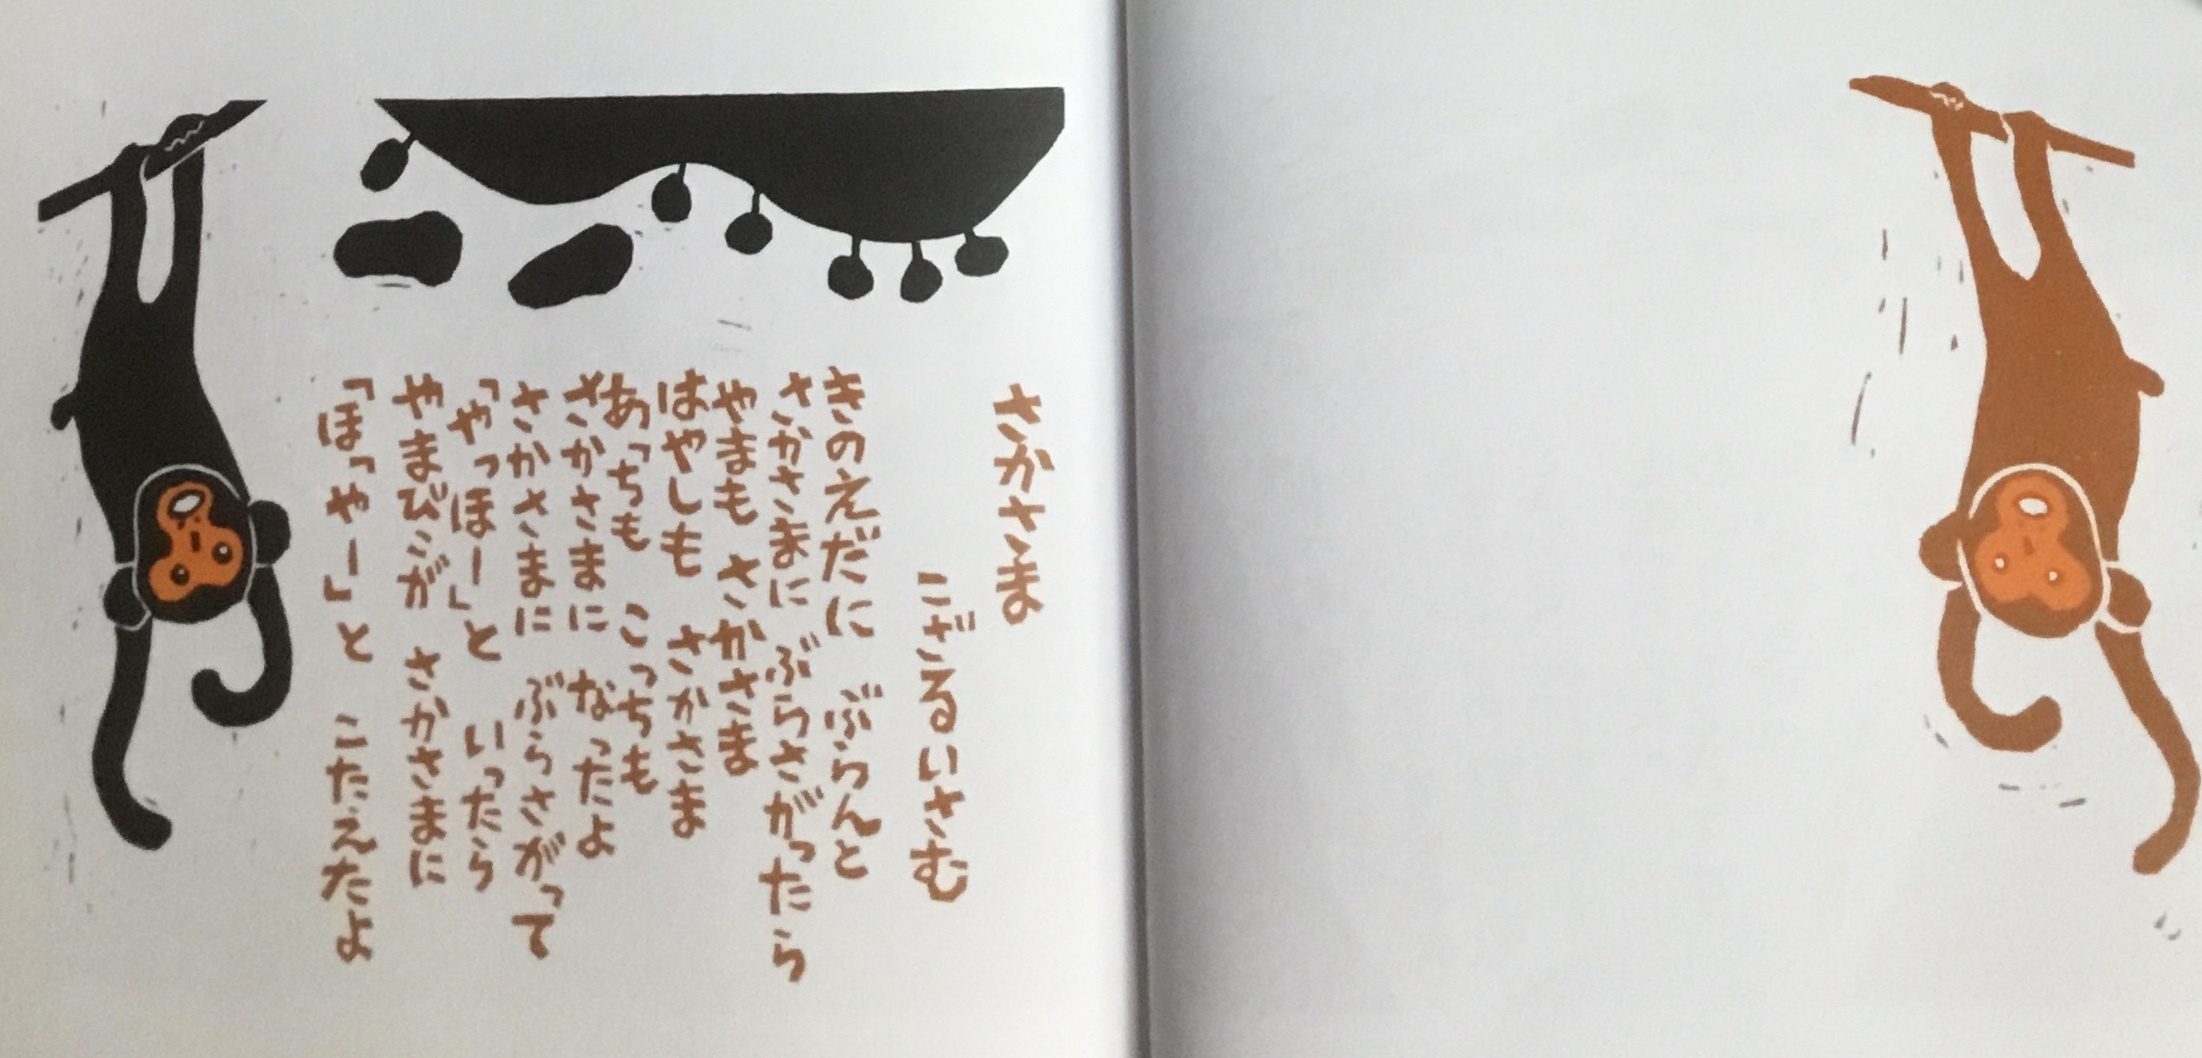 さかさま
ござるいさむ
きのえだに ぶらんと
さかさまに ぶらさがったら
やまも さかさま
はやしも さかさま
あっちも こっちも
さかさまに なったよ
さかさまに ぶらさがって
「やっほー」と いったら
やまびこが さかさまに
「ほっやー」と こたえたよ